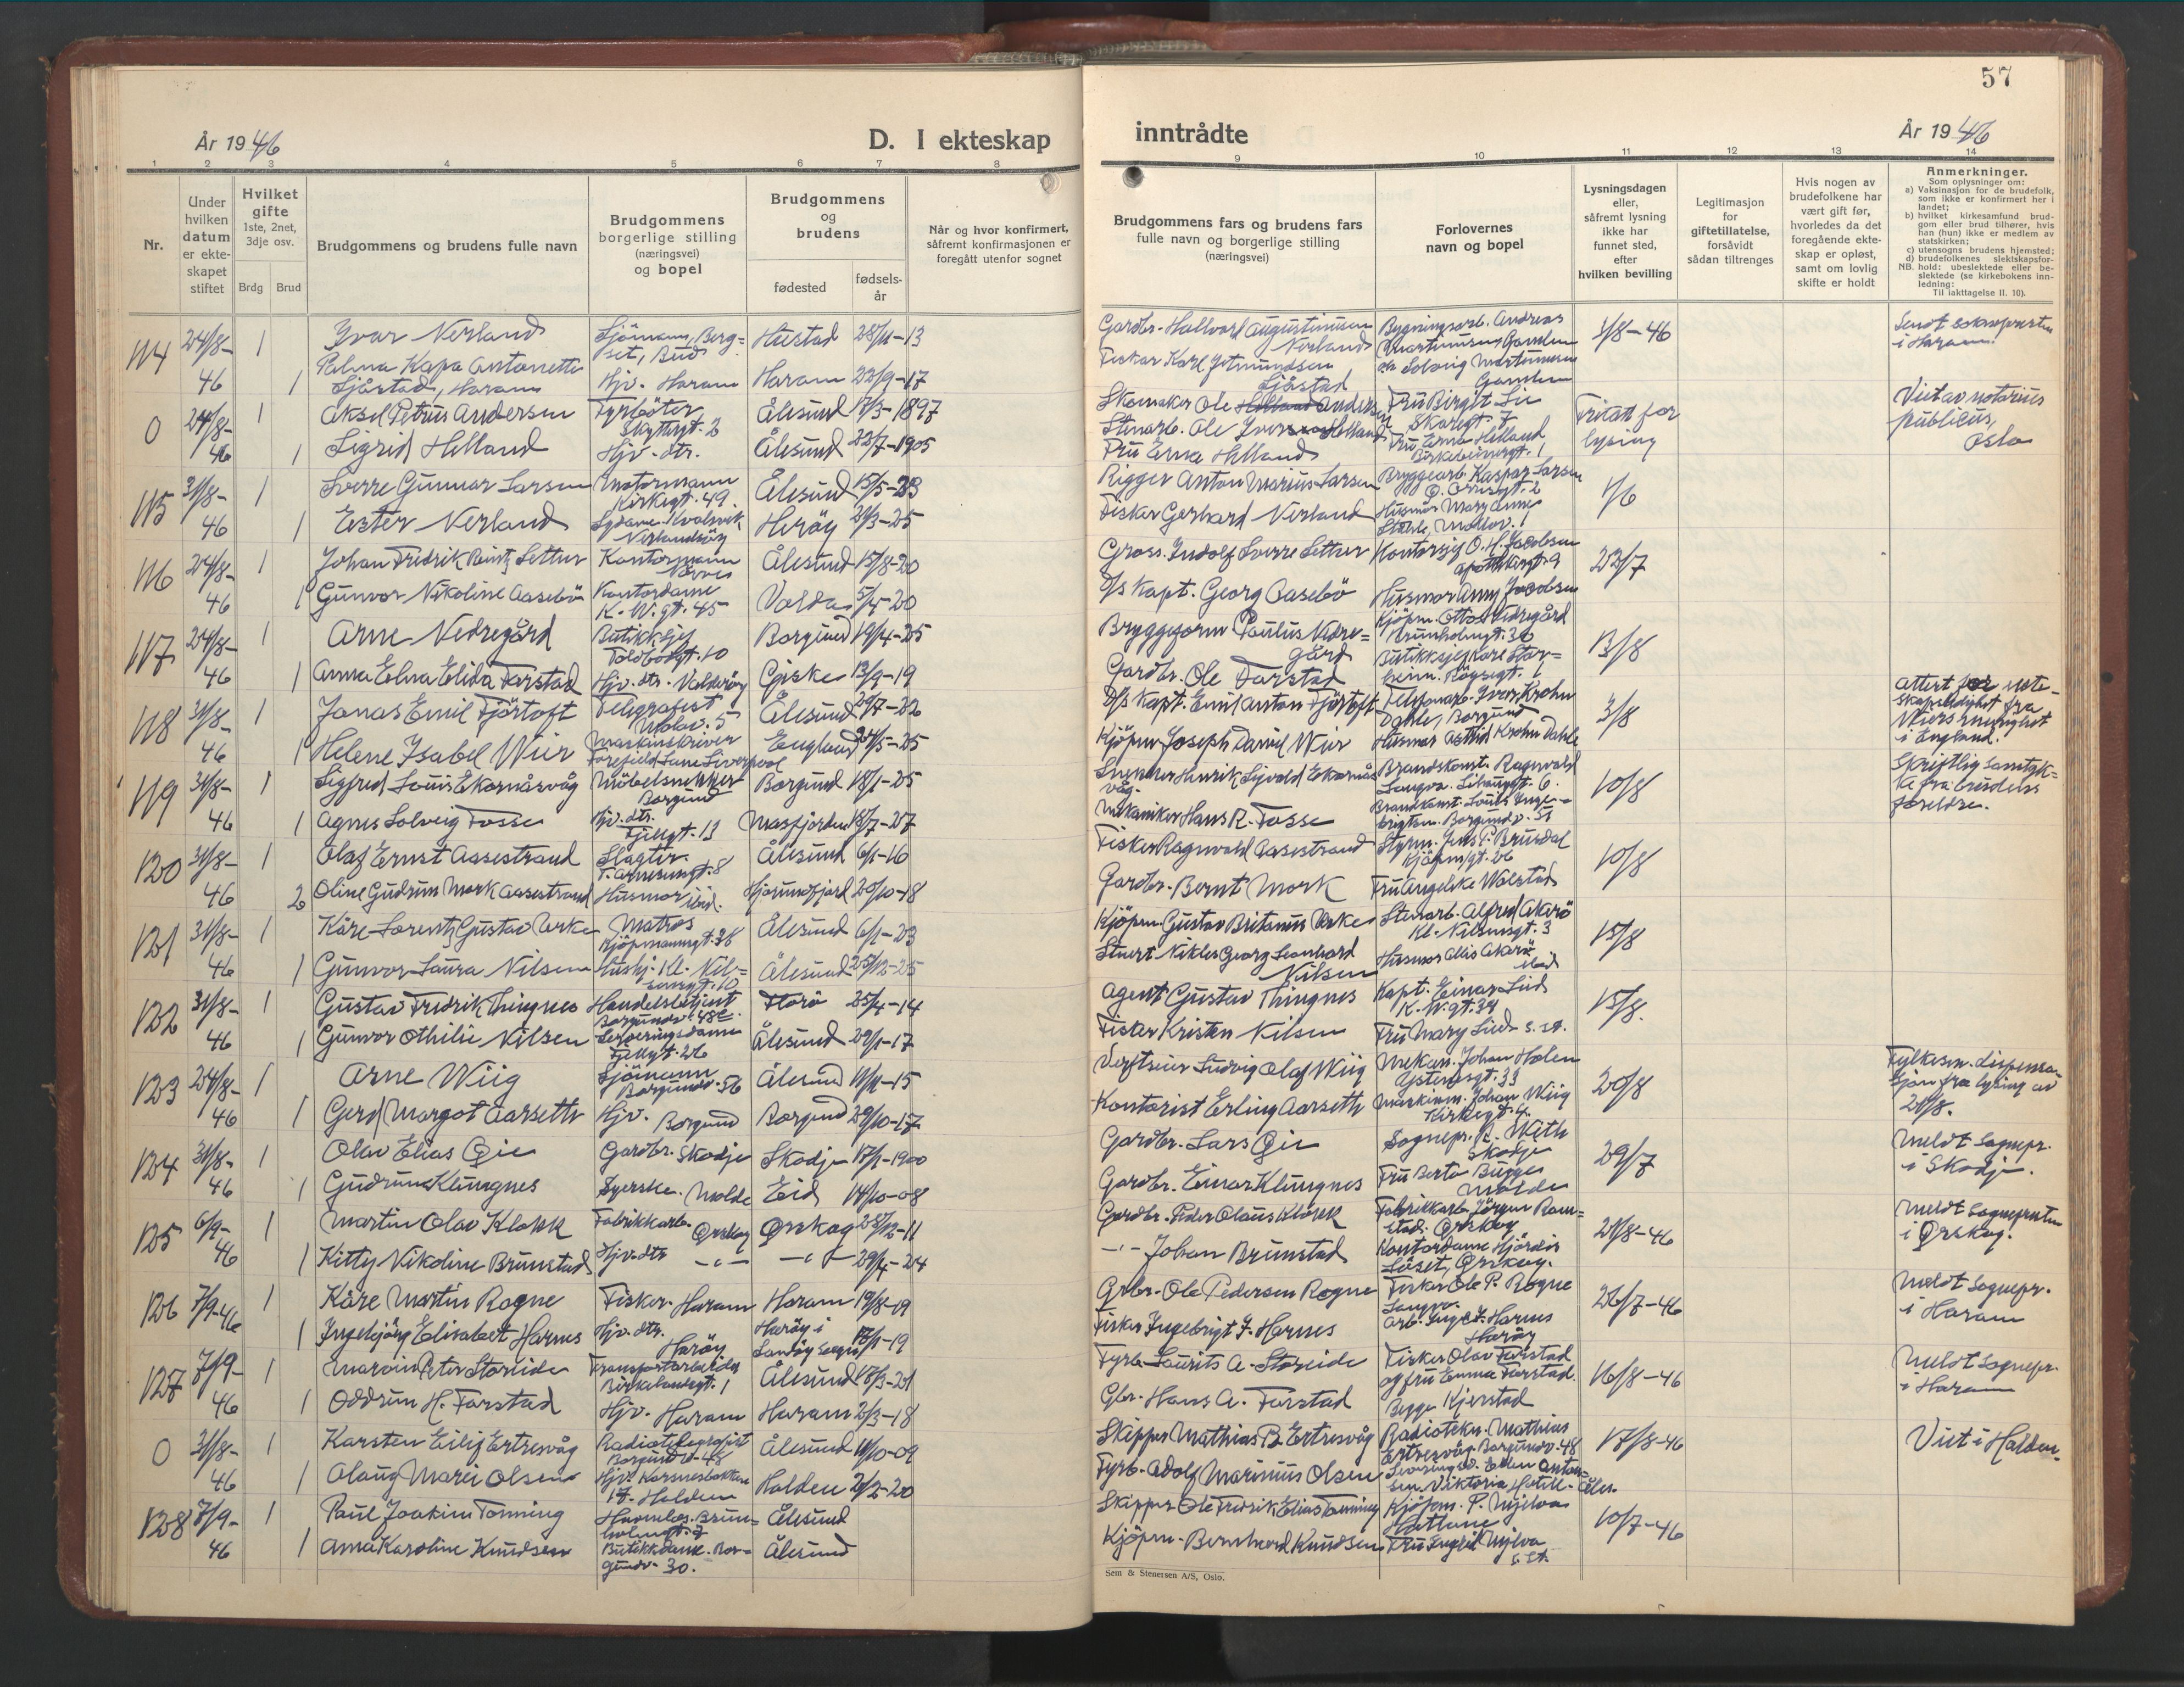 57
År 1946
D. I ekteskap
inntrådte
År 1946
1 2 3 4 5 6 7 8
9 10 11 12 13 14
Nr.
Under hvilken datum er ekteskapet stiftet
Hvilket gifte 1ste, 2net, 3dje osv.
Brdg Brud
Brudgommens og brudens fulle navn
Brudgommens borgerlige stilling (næringsvei) og bopel
Brudgommens og brudens
fødested
fødsels-år
Når og hvor konfirmert, såfremt konfirmasjonen er foregått utenfor sognet
Brudgommens fars og brudens fars fulle navn og borgerlige stilling (næringsvei)
Forlovernes navn og bopel
Lysningsdagen eller, såfremt lysning ikke har funnet sted, efter hvilken bevilling
Legitimasjon for giftetillatelse, forsåvidt sådan tiltrenges
Hvis nogen av brudefolkene har vært gift før, hvorledes da det foregående ekteskap er opløst, samt om lovlig skifte er holdt
Anmerkninger.
Som oplysninger om:
a) Vaksinasjon for de brudefolk, som ikke er konfirmert her i landet;
b) hvilket kirkesamfund brudgom eller brud tilhører, hvis han (hun) ikke er medlem av statskirken;
c) utensogns brudens hjemsted;
d) brudefolkenes slektskapsforhold: ubeslektede eller beslektede (se kirkebokens innledning:
NB.
Til iakttagelse II. 10).
114 24/8-46 1 Yvar Nerland Sjömann, Bergset, Bud Hustad 13 Gardbr. Hallvard Augustinusen Nerland Bygningsarb. Andreas Martinusen Gamlem 1/8-46
1 Palma Kapa Antonette Sjåstad, Haram Hjv. Haram Haram 22/9-17 Fisker Karl Sjåstad Solveig Martinusen Gamlem
0 24/8-46 1 Aksel Petrus Andersen Fyrböter Ålesund 17/3-1897 Skomaker Ole Andersen Fru Birgit Lie Skaregt. 7 Fritatt for lysing Viet av notarius publicus, Oslo
1 Sigrid Helland Hjv. dtr. Ålesund 22/7-1905 Stenarb. Ole Helland Fru Erna Helland
Fru Erna Helland
115 31/8-46 1 Sverre Gunnar Larsen Motormann Kirkegt. 49. Ålesund 15/5-23 Rigger Anton Marius Larsen Bryggearb. Kaspar Larsen 1/6
1 Ester Nerland Sydame Nerlandsöy Heröy 21/3-25 Fisker Gerhard Nerland Husmor Mary Anne
116 24/8-46 1 Johan Fridrik Settur Kontormann Ålesund 15/8-20 Gross. Indolf Sverre Kontorsjef O. H. Jacobsen 23/7
1 Gunvor Nikoline Aasebö Kontordame K. W. gt. 45 Volda 5/4-20 D/s Kapt. Georg Aasebö Husmor Anny Jacobsen
117 24/8-46 1 Arne Nedregård Butikksjef Toldbodgt. 10 Borgund 19/4-25 Bryggeform Paulus Nedregård Kjöpm. Otto Nedregård 13/8
1 Anna Elna Elida Farstad Hjv. dtr. Valderöy Giske 13/9-19 Gardbr. Ole Farstad Butikksjef Kåre
118 31/8-46 1 Jonas Emil Fjörtoft Telegrafist Ålesund 26/7-22 D/s Kapt. Emil Anton Fjörtoft Telefonarb. Ivar Krohn Dahle, Borgund 3/8 Attest for ekteskapsledighet fra i England.
1 Helene Isabel Wier Maskinskriver Liverpool England 24/5-25 Kjöpm. Joseph Daniel Wier Husmor Astrid Krohn Dahle
119 31/8-46 1 Sigfred Louis Ekornåsvåg Möbelsnekker Borgund Borgund 18/1-25 Snekker Henrik Sjvold Ekornåsvåg Brandkonst. Ragnvald 10/8 Skriftlig samtykke fra brudens foreldre.
1 Agnes Solveig Fosse Hjv. dtr. Fjellgt. 13 Masfjorden 18/7-27 Mekaniker Hans R. Fosse Brandkonst. Louis
120 31/8-46 1 Olaf Ernst Aasestrand Slagter Ålesund 6/1-16 Fisker Ragnvald Aasestrand Styrm. Jens P. Brusdal Kjöpm.gt. 26 10/8
2 Oline Gudrun Mork Aasestrand Husmor ibid. Hjörundfjord 20/10-18 Gardbr. Bernt Mork Fru Angelike Wolstad
121 31/8-46 1 Kåre Lorentz Gustav Urke Matros Kjöpmannsgt. 38 Ålesund 6/1-23 Kjöpm. Gustav Britanus Urke Stenarb. Alfred Akerö Kl. Nilsensgt. 3 15/8
1 Gunvor Laura Nilsen Hushj. Kl. Nilsensgt. 10 Ålesund 25/12-25 Stuert Niklas Georg Leonhard Nilsen Husmor Alis Akerö ibid
122 31/8-46 1 Gustav Fridrik Thingnes Handelsbetjent Borgundv. Florö 25/4-14 Agent Gustav Thingnes Kapt. Einar Lied K. W. gt. 34 15/8.
1 Gunvor Othilie Nilsen Serveringsdame Fjellgt. 26 Ålesund 29/1-17 Fisker Kristen Nilsen Fru Mary Lied s.st.
123 24/8-46 1 Arne Wiig Sjömann Borgundv. 56 Ålesund 15 Verftseier Ludvig Olaf Wiig Mekan. Johan Holen 20/8 Fylkesm. dispensasjon fra lysing av 21/8.
1 Gerd Margot Aarseth Hjv. Borgund Borgund 29/10-17 Kontorist Erling Aarseth Maskinm. Johan Wiig Kirkegt. 4.
124 31/8-46 1 Olav Elias Gie Gardbr. Skodje Skodje 17/1-1900 Gardbr. Lars Gie Sognepr. R. With Skodje 29/7 Meldt sognepr. i Skodje.
1 Gudrun Klungnes Syerske. Molde Eid 14/10-08 Gardbr. Einar Klungnes Fru Berta Bugge Molde
125 6/9-46 1 Martin Olav Klokk Fabrikkarb. Ørskog Ørskog 28/12-11 Gardbr. Peder Olaus Klokk Fabrikkarb. Jörgen Ramstad. Ørskog 21/8-46 Meldt sognepresten i Ørskog.
1 Kitty Nikoline Brunstad Hjv. dtr. -"- -"- 29/4-24 -"- Johan Brunstad Kontordame Hjördis Löset, Ørskog.
126 7/9-46 1 Kåre Martin Rogne Fisker. Haram Haram 19/8-09 Grbr. Ole Pedersen Rogne Fisker Ole P. Rogne 26/7-46 Meldt sognepr. i Haram
1 Ingebjörg Elisabet Harnes Hjv. dtr. Haröy Haröy i Sandöy 19 Fisker Ingebrigt J. Harnes Arb. Harnes Haröy
127 7/9-46 1 Marvin Peter Storeide Transportarbeider Birkelandsgt. 1 Ålesund 18/3-21 Fyrb. Laurits A. Storeide Fisker Olav Farstad og fru Emma Farstad. 16/8-46 Meldt sognepr. i Haram
1 Oddrun H. Farstad Hjv. Haram Haram 2/3-18 Gbr. Hans A. Farstad Begge Kjerstad
0 31/8-46 1 Karsten Eilif Ertresvåg Radiotelegrafist Borgundv. 48 Ålesund 11/10-09 Skipper Mathias B. Ertresvåg Radiotekn. Mathias Ertresvåg Borgundv. 48 17/8-46 Viet i Halden
1 Olaug Marie Olsen Hjv. 17. Halden Halden 2/2-20 Fyrb. Adolf Marinius Olsen Serveringsd. Ellen Antonsen. Viktoria Hotell
128 7/9-46 1 Paul Joakim Tonning Ålesund Skipper Ole Fredrik Elias Tonning Kjöpm. P. Mjelva 10/7-46
1 Anna Karoline Knudsen Butikkdame. Borgundv. 30. Ålesund Kjöpm. Bernhard Knudsen Fru Ingrid Mjelva s.st.
Sem & Stenersen A/S, Oslo.